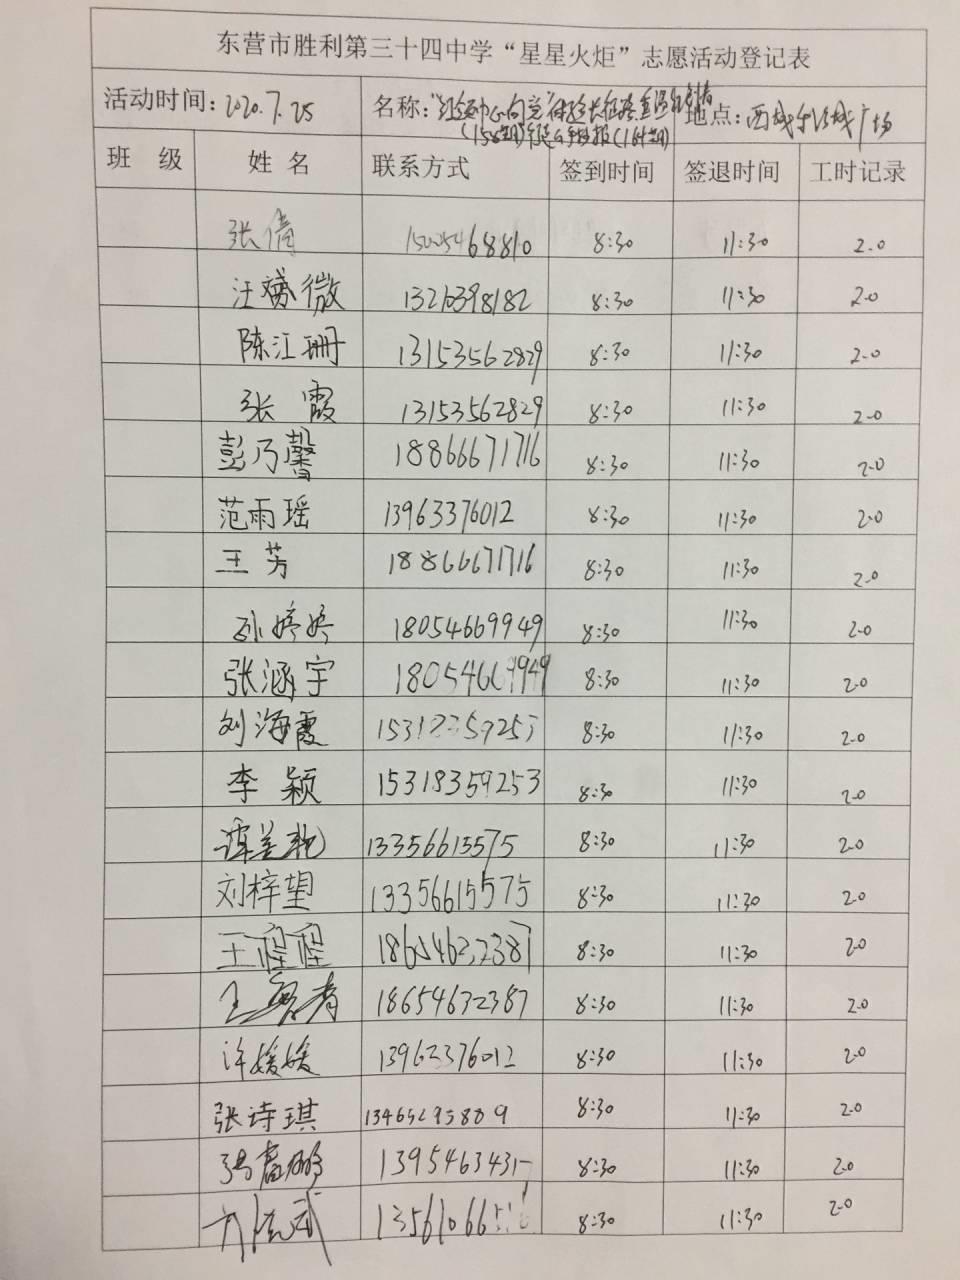 东营市胜利第三十四中学“星星火炬”志愿活动登记表
活动时间：2020.7.25 名称：“红领巾心向党” 地点：西城 广场
班 级 姓 名 联系方式 签到时间 签退时间 工时记录
张倩 15005468810 8:30 11:30 2.0
汪 薇 13210398182 8:30 11:30 2.0
陈江珊 13153562829 8:30 11:30 2.0
张 霞 13153562829 8:30 11:30 2.0
彭乃馨 18866671716 8:30 11:30 2.0
范雨瑶 13963376012 8:30 11:30 2.0
王 芳 18866671716 8:30 11:30 2.0
孙婷婷 18054669949 8:30 11:30 2.0
张涵宇 18054669949 8:30 11:30 2.0
刘海霞 8:30 11:30 2.0
李 颖 15318359253 8:30 11:30 2.0
谭美艳 13356615575 8:30 11:30 2.0
刘梓望 13356615575 8:30 11:30 2.0
王程程 18654632387 8:30 11:30 2.0
王 18654632387 8:30 11:30 2.0
许媛媛 13963376012 8:30 11:30 2.0
张诗琪 13465295889 8:30 11:30 2.0
8:30 11:30 2.0
8:30 11:30 2.0